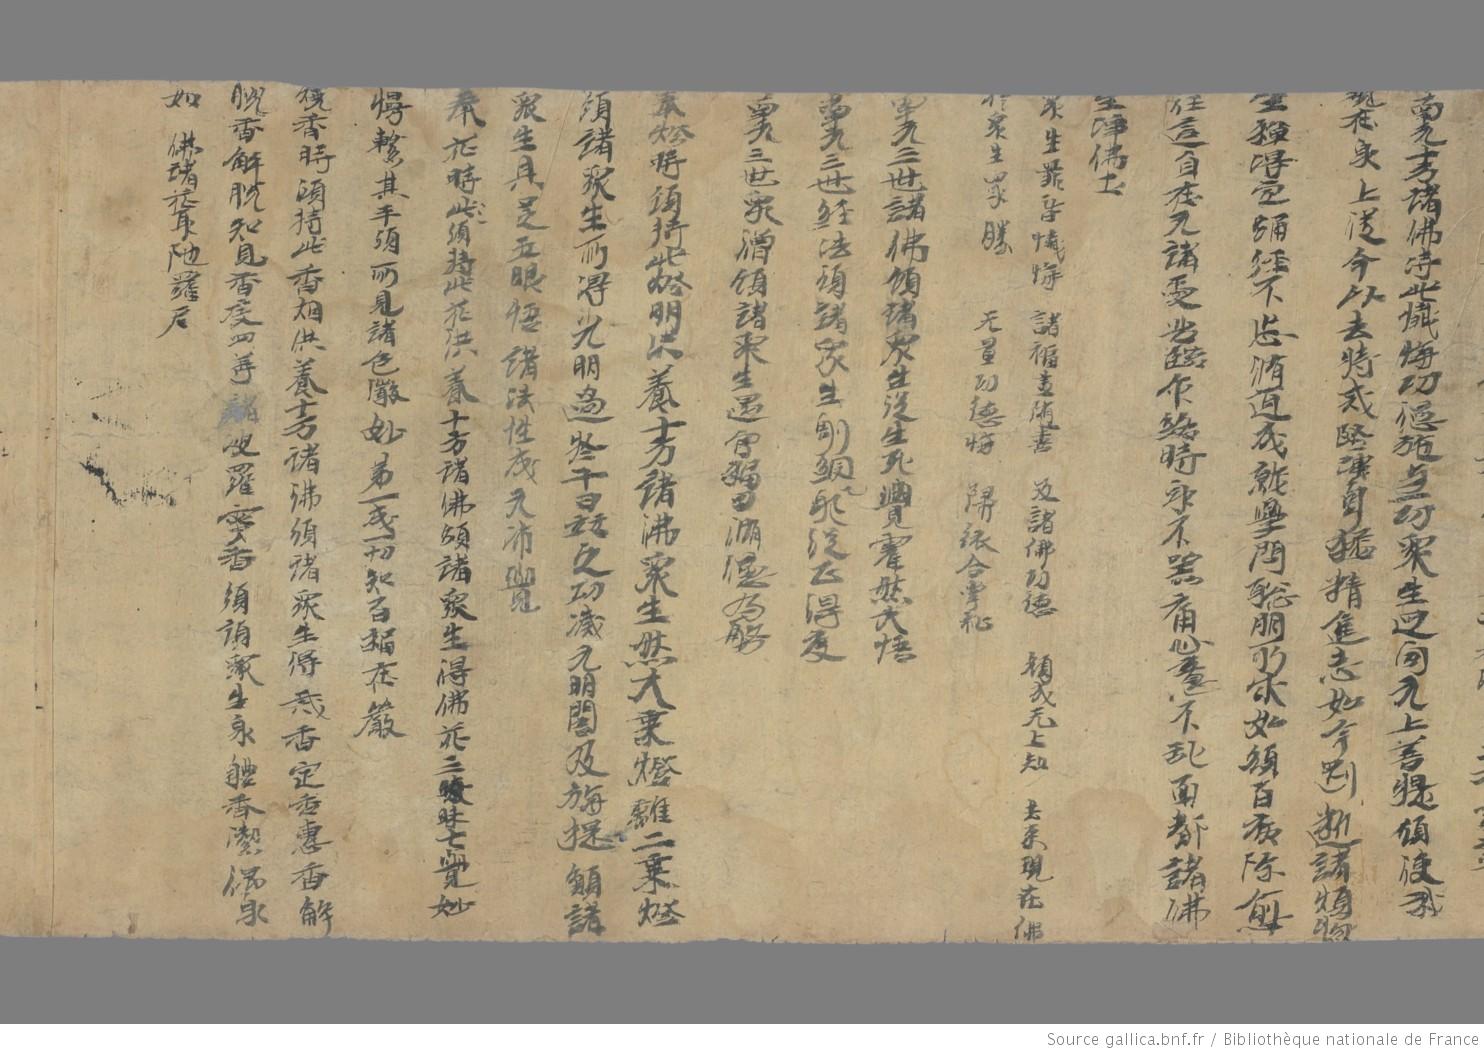 南无十方諸佛持此懺悔功德施与一切眾生迴向无上善提願使我
現在永上從今以去持戒堅彊身猛精進志如今剛斷諸煩惱
坐禪得定誦經不忘循道成就學問聡明所求如願百病除愈
往這自在无諸憂患臨乍終時永不黑痛心意不乱面都諸佛
生淨佛土
眾生罪皆懺悔 諸福盡隨喜 及諸佛功德 願成无上知 去来現在佛
於眾生眾勝 无量功德悔 歸依合掌礼
南无三世諸佛願諸眾生從生死覺霍然大悟
南无三世経法願諸眾生剛䌉能從正得度
南无三世眾僧願諸眾生遇會福田循德為
奉燈時須持此燈明供養十方諸佛眾生然大乗燈離二乗燈
須諸眾生所得光明過於千日之功滅无明闇及 願諸
眾生具足五眼悟諸法性成无覺
奉花時此須持此花供養十方諸佛願諸眾生得佛花三昧七覺妙
其手須所見諸色嚴妙第一戒一切知百福在嚴
燒香時須持此香烟供養十方諸佛須諸眾生得戒香定香惠香解
脱香解脱知見香度四等諸波羅蜜香須諸眾生永離香潔
如 佛諸 陁羅尼
Source gallica.bnf.fr / Bibliothèque nationale de France